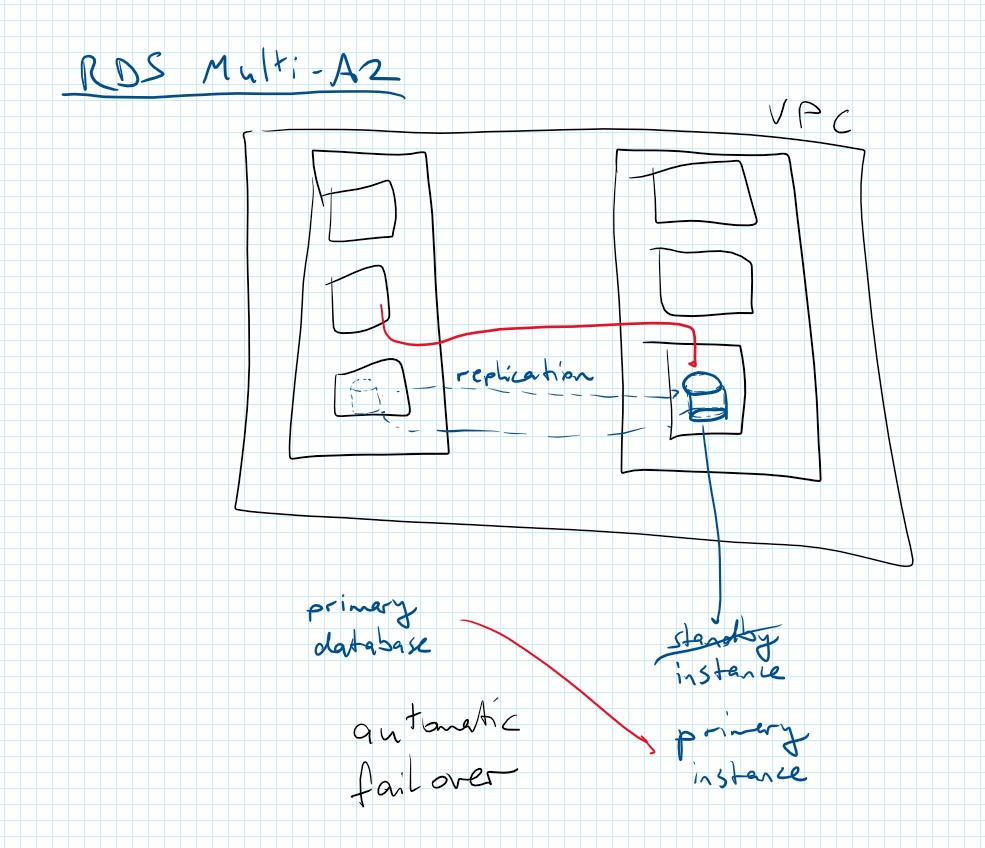 RDS Multi-AZ
VPC
replication
primary
database
standby
instance
automatic
failover
primary
instance